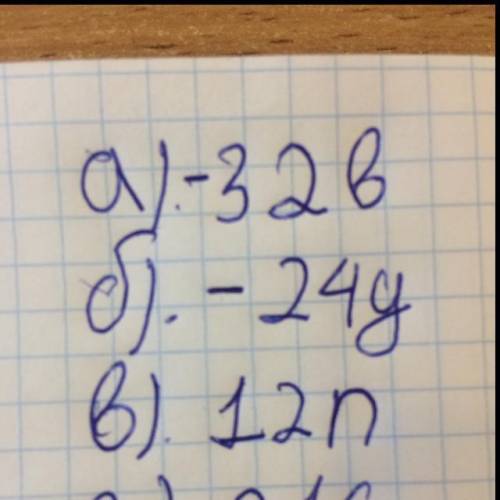 а).-32в
б). - 24у
в). 12n